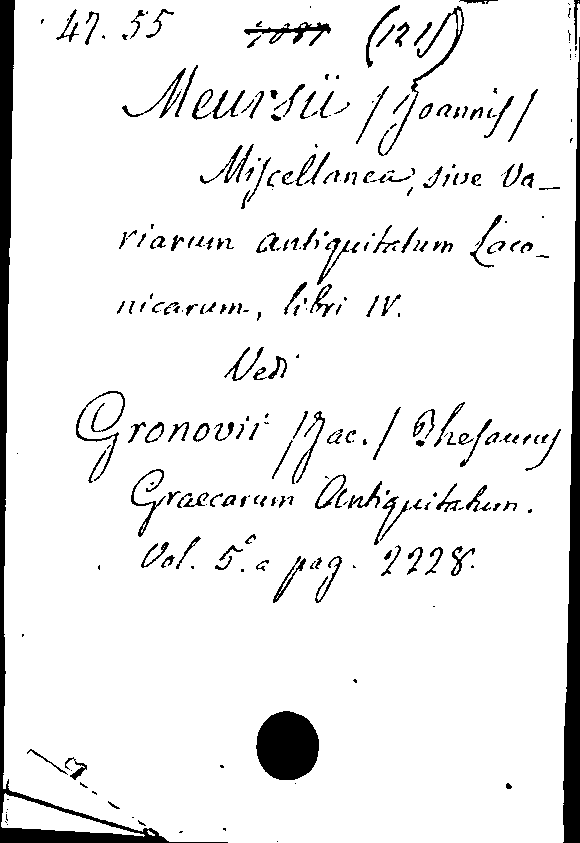 47. 55 (121)
Meursii /Joannis/
Miscellanea, sive Va-
riarum Antiquitatum Laco-
nicarum, libri IV.
Vedi
Gronovii /Jac./ Thesaurus
Graecarum Antiquitatum.
Vol. 5.° a pag. 2228.